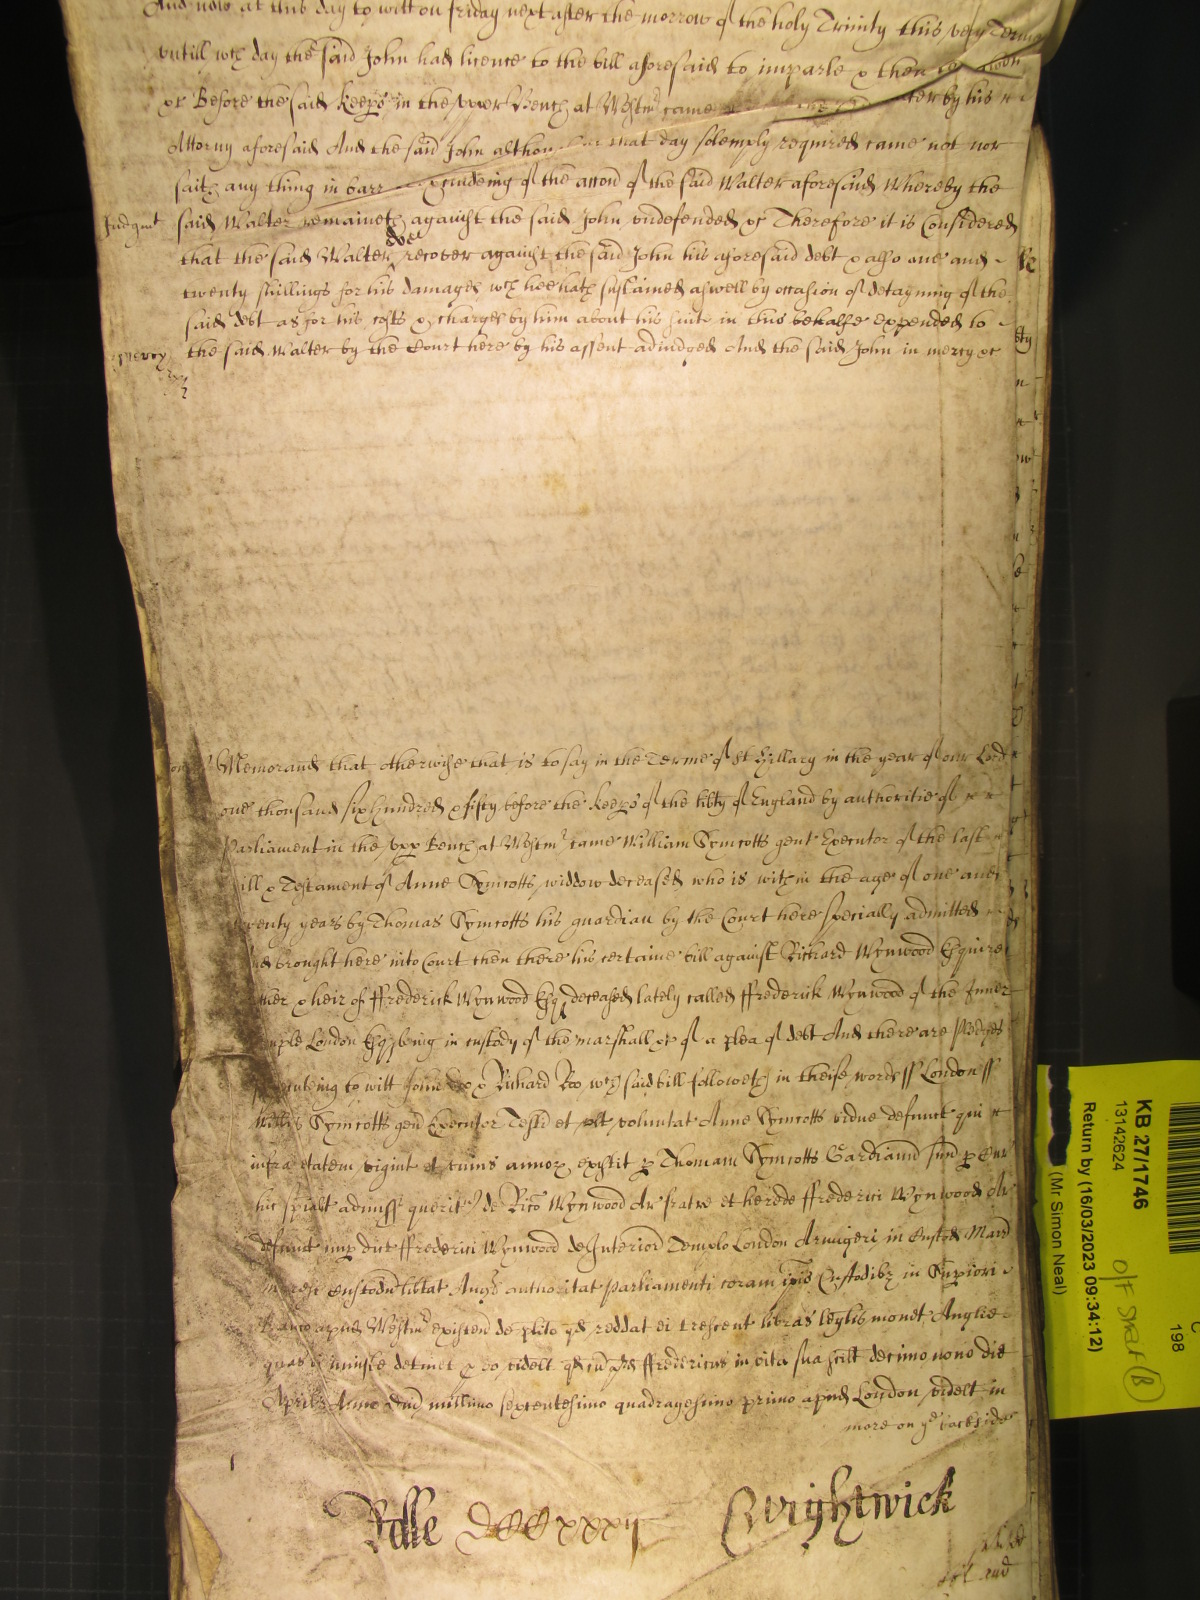 And now at this day to witt on friday next after the morrow of the holy Trinity this very Terme
untill wch day the said John had licence to the bill aforesaid to imparle & then
&c Before the said Keeps in the upper Bench at Westmr came by his
Attorny aforesaid And the said John that day solemply required came not nor
saith any thing in barr of the accon of the said Walter aforesaid Whereby the
Judgmt said Walter remaineth against the said John undefended &c Therefore it is Considered
that the said Walter doe recover against the said John his aforesaid debt & also one and
twenty shillings for his damages wch hee hath sustained aswell by occasion of detayning of the
said debt as for his costs & charges by him about his suite in this behalfe expended to
Mercy the said Walter by the Court here by his assent adiudged And the said John in mercy &c
Memorand that otherwise that is to say in the Terme of St Hillary in the year of our Lord
one thousand six hundred & fifty before the Keeps of the libty of England by authoritie of
Parliament in the upp Bench at Westmr came William Symcotts gent Executor of the last
ill & Testament of Anne Symcotts widdow deceased who is within the age of one and
twenty years by Thomas Symcotts his guardian by the Court here specially admitted
nd brought here into Court then there his certaine bill against Richard Wynwood Esquire
ther & heir of ffrederick Wynwood Esq deceased lately called ffrederick Wynwood of the Inner
emple London Esq being in custody of the marshall &c of a plea of debt And there are pledges
to witt John Doo & Richard Roo wch said bill followeth in theise words ss London ss
Willis Symcotts gen Executor Testi et ult voluntat Anne Symcotts vidue defunct qui
infra etatem vigint et unius annoz existit p Thomam Symcotts Gardianu suu p Cur
hic spialt admiss querit de Rico Wynwood Ar fratre et herede ffrederici Wynwood Ar
defunct nup dict ffrederici Wynwood de Interiori Templo London Armigeri in Custod Marr
Custodu libtat Angl authoritat Parliamenti coram ipis Custodibz in Supiori
Banco apud Westm existen de plito qd reddat ei trescent libras leglis monet Anglie
quas ei iniuste detinet p eo videlt qd cu pd ffredericus in vita sua scilt decimo nono die
Aprilis Anno Dni millimo sexcentesimo quadragesimo primo apud London videlt in
more on ye backside
Rolle DCCCxxxij Wrightwick
KB 27/1746
13142624
O/F SHELF (B)
Return by (16/03/2023 09:34:12)
(Mr Simon Neal)
198